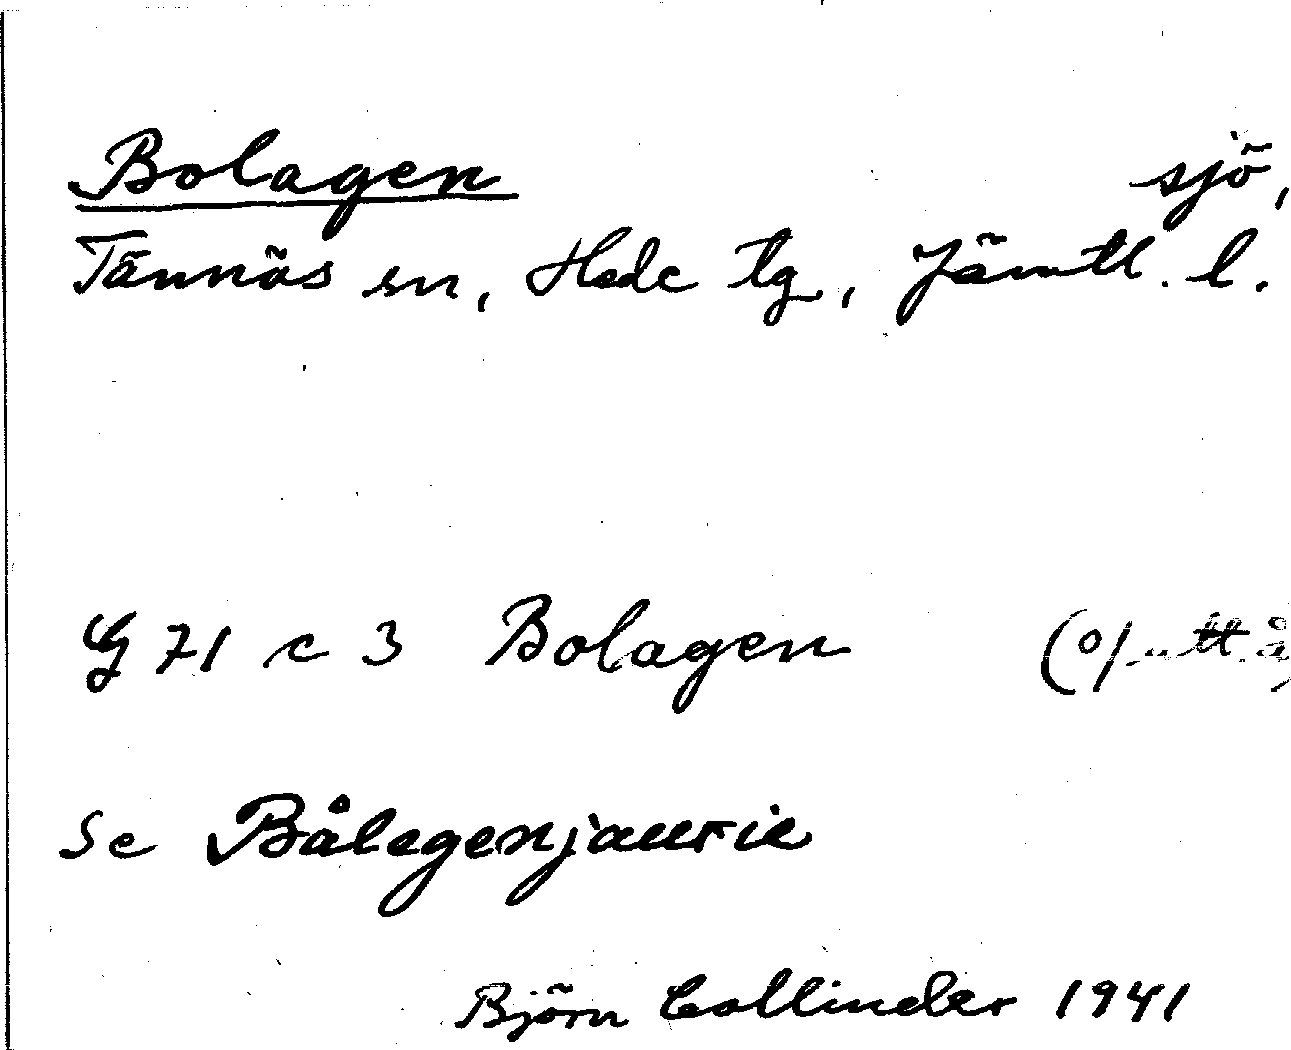 Bolagen sjö,
Tännäs sn, Hede tg, Jämtl. l.
G 71 c 3 Bolagen (o/ utt. å)
Se Bålegenjaurie
Björn Collinder 1941